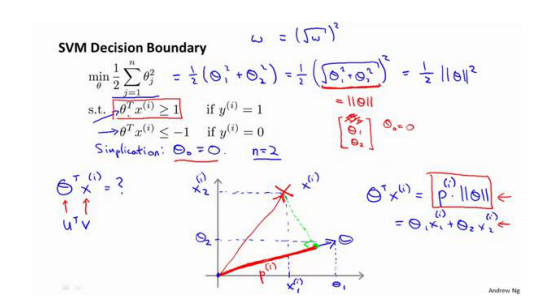 ω = (√ω)²
SVM Decision Boundary
min_θ 1/2 ∑_{j=1}^{n} θ_j² = 1/2 (θ₁² + θ₂²) = 1/2 (√(θ₁² + θ₂²))² = 1/2 ||θ||²
= ||θ||
s.t. θᵀx⁽ⁱ⁾ ≥ 1 if y⁽ⁱ⁾ = 1
→ θᵀx⁽ⁱ⁾ ≤ −1 if y⁽ⁱ⁾ = 0
[θ₁ θ₂] θ₀=0
Simplication: θ₀ = 0. n=2
θᵀx⁽ⁱ⁾ = ?
↑ ↑
uᵀv
x₂⁽ⁱ⁾
x⁽ⁱ⁾
θ₂
θ
p⁽ⁱ⁾
x₁⁽ⁱ⁾
θ₁
θᵀx⁽ⁱ⁾ = p⁽ⁱ⁾ · ||θ|| ←
= θ₁x₁⁽ⁱ⁾ + θ₂x₂⁽ⁱ⁾ ←
Andrew Ng